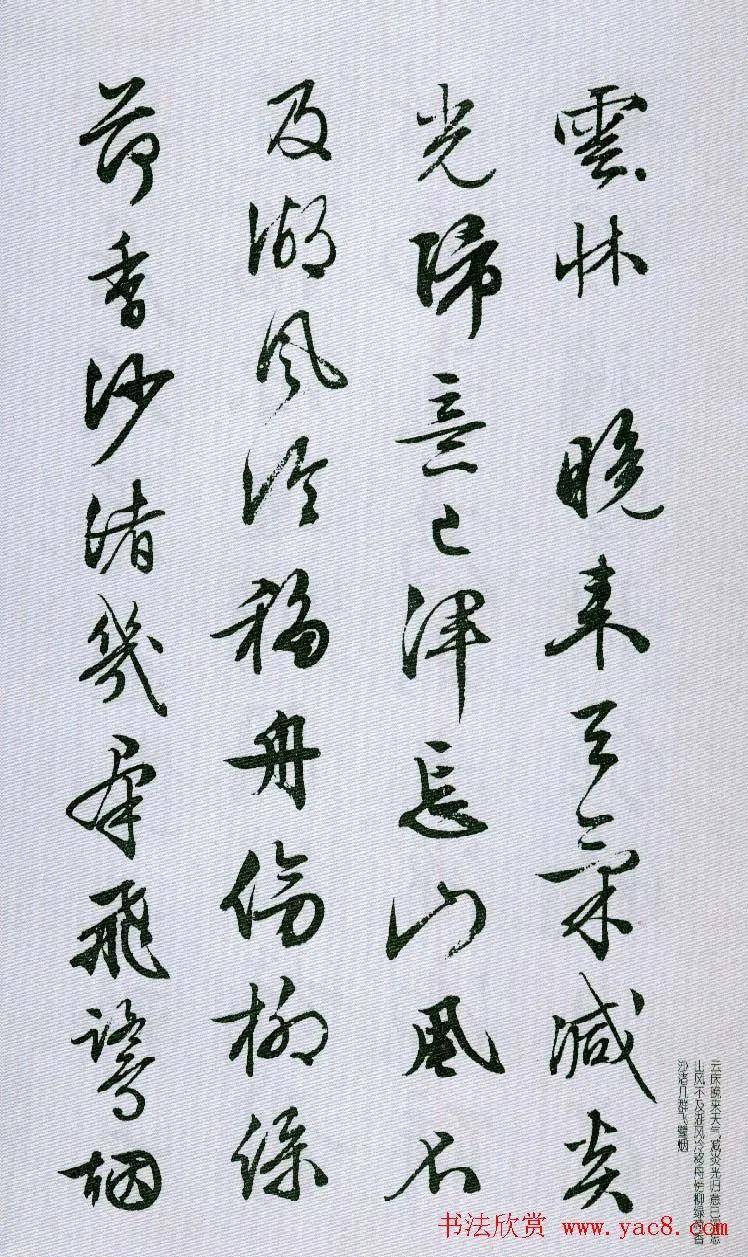 雲牀 晚来天氣減炎
光歸意已津忘山風不
及湖風冷移舟傍柳緑
荷香沙渚幾群飛鷺烟
云床晚来天气减炎光归意已忘
山风不及湖风冷移舟傍柳绿香
沙渚几群飞鹭烟
书法欣赏 www.yac8.com